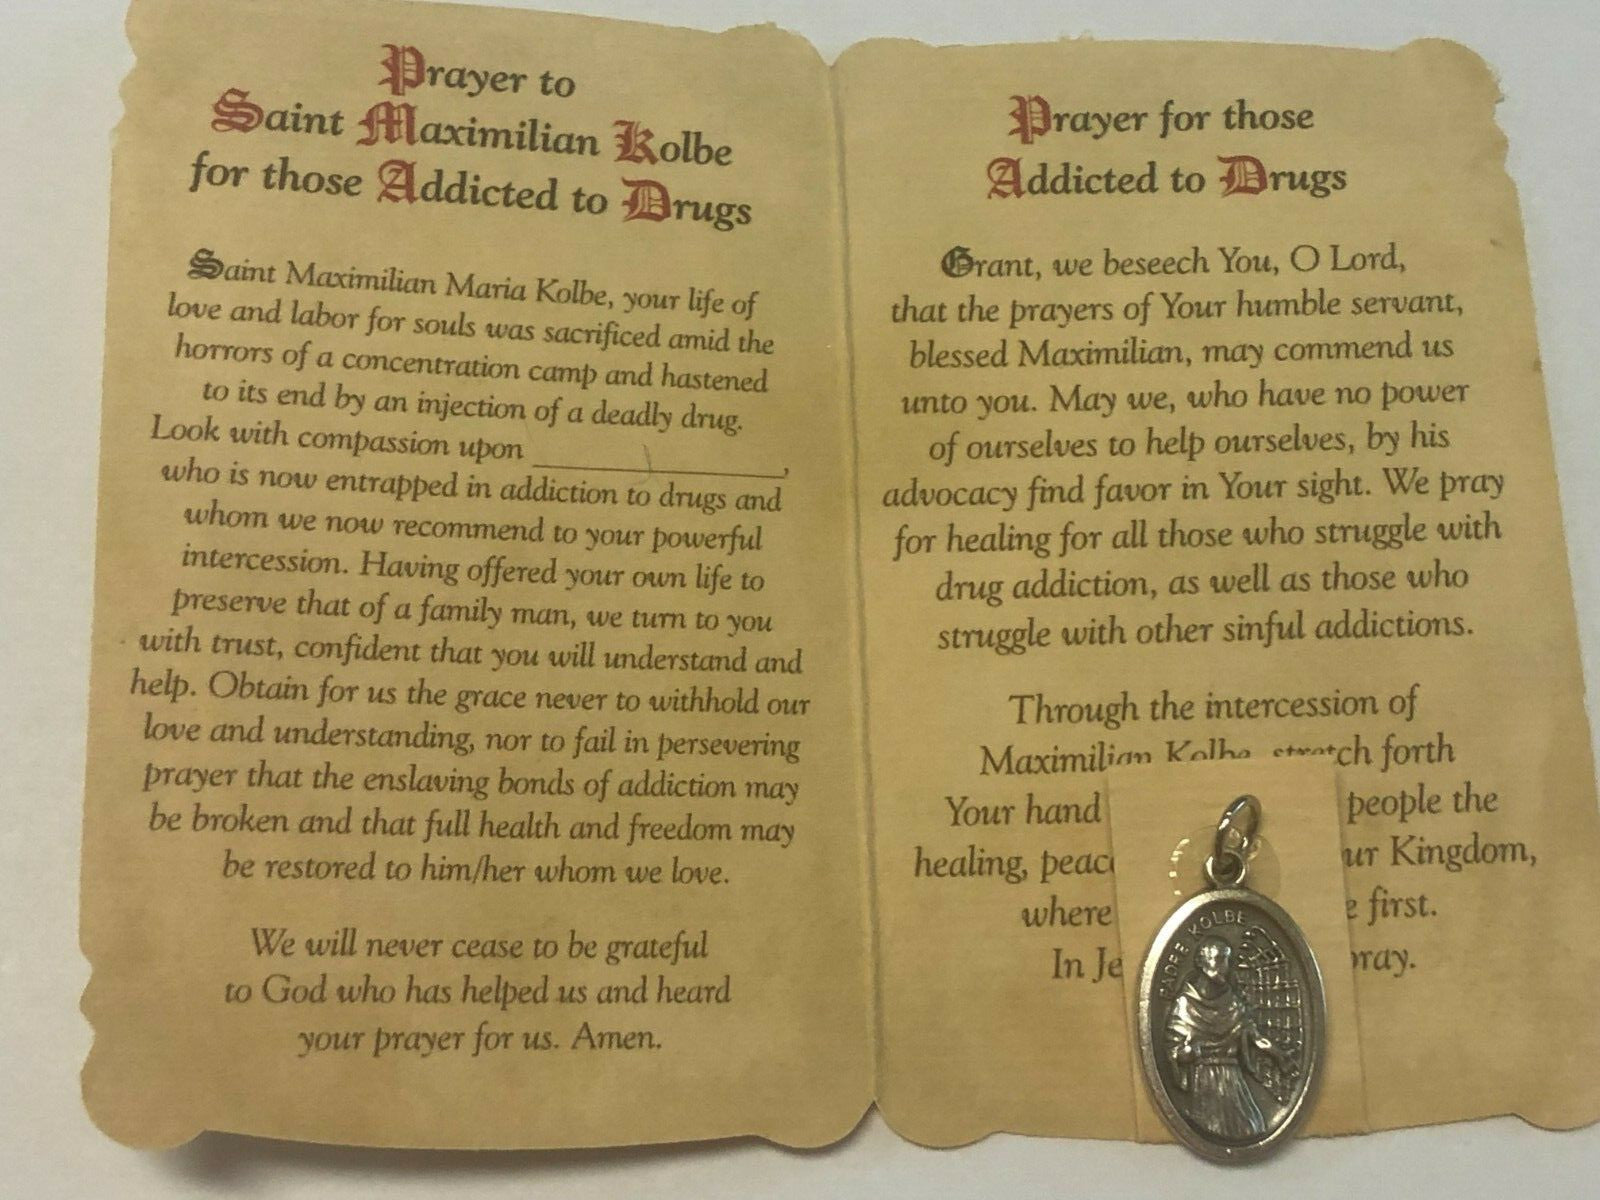 Prayer to
Saint Maximilian Kolbe
for those Addicted to Drugs
Saint Maximilian Maria Kolbe, your life of
love and labor for souls was sacrificed amid the
horrors of a concentration camp and hastened
to its end by an injection of a deadly drug.
Look with compassion upon ____________,
who is now entrapped in addiction to drugs and
whom we now recommend to your powerful
intercession. Having offered your own life to
preserve that of a family man, we turn to you
with trust, confident that you will understand and
help. Obtain for us the grace never to withhold our
love and understanding, nor to fail in persevering
prayer that the enslaving bonds of addiction may
be broken and that full health and freedom may
be restored to him/her whom we love.
We will never cease to be grateful
to God who has helped us and heard
your prayer for us. Amen.
Prayer for those
Addicted to Drugs
Grant, we beseech You, O Lord,
that the prayers of Your humble servant,
blessed Maximilian, may commend us
unto you. May we, who have no power
of ourselves to help ourselves, by his
advocacy find favor in Your sight. We pray
for healing for all those who struggle with
drug addiction, as well as those who
struggle with other sinful addictions.
Through the intercession of
Maximilian Kolbe, stretch forth
Your hand people the
healing, Kingdom,
where first.
In
PADRE KOLBE